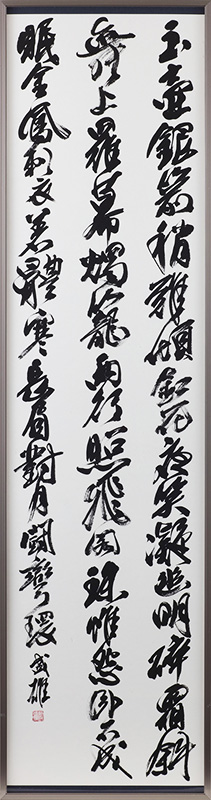 玉壺銀箭稍難傾釭花夜笑凝幽明碎霜斜
舞上羅幕燭籠兩行照飛閣珠帷怨臥不成
眠金鳳刺衣著體寒長眉對月鬪彎環 武雄